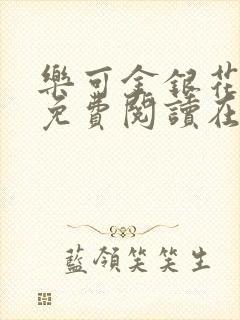 樂可金銀花
免費閱讀在
藍領笑笑生